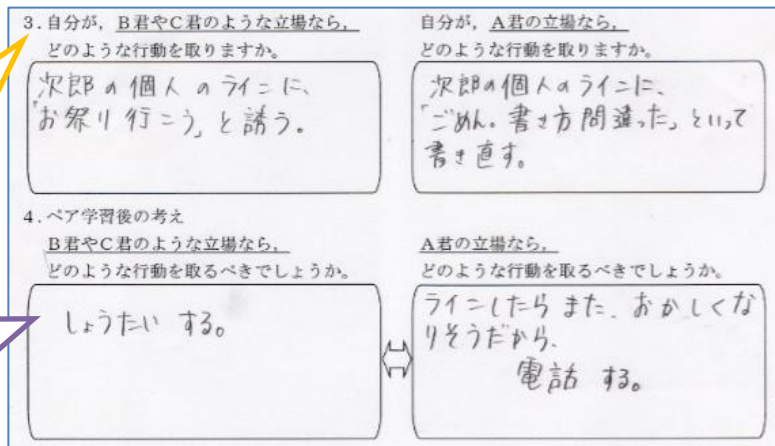 3.自分が,B君やC君のような立場なら,
どのような行動を取りますか。
次郎の個人のラインに、
「お祭り行こう」と誘う。
自分が,A君の立場なら,
どのような行動を取りますか。
次郎の個人のラインに、
「ごめん。書き方間違った」といって
書き直す。
4.ペア学習後の考え
B君やC君のような立場なら,
どのような行動を取るべきでしょうか。
しょうたい する。
A君の立場なら,
どのような行動を取るべきでしょうか。
ラインしたら また、おかしくな
りそうだから、
電話 する。